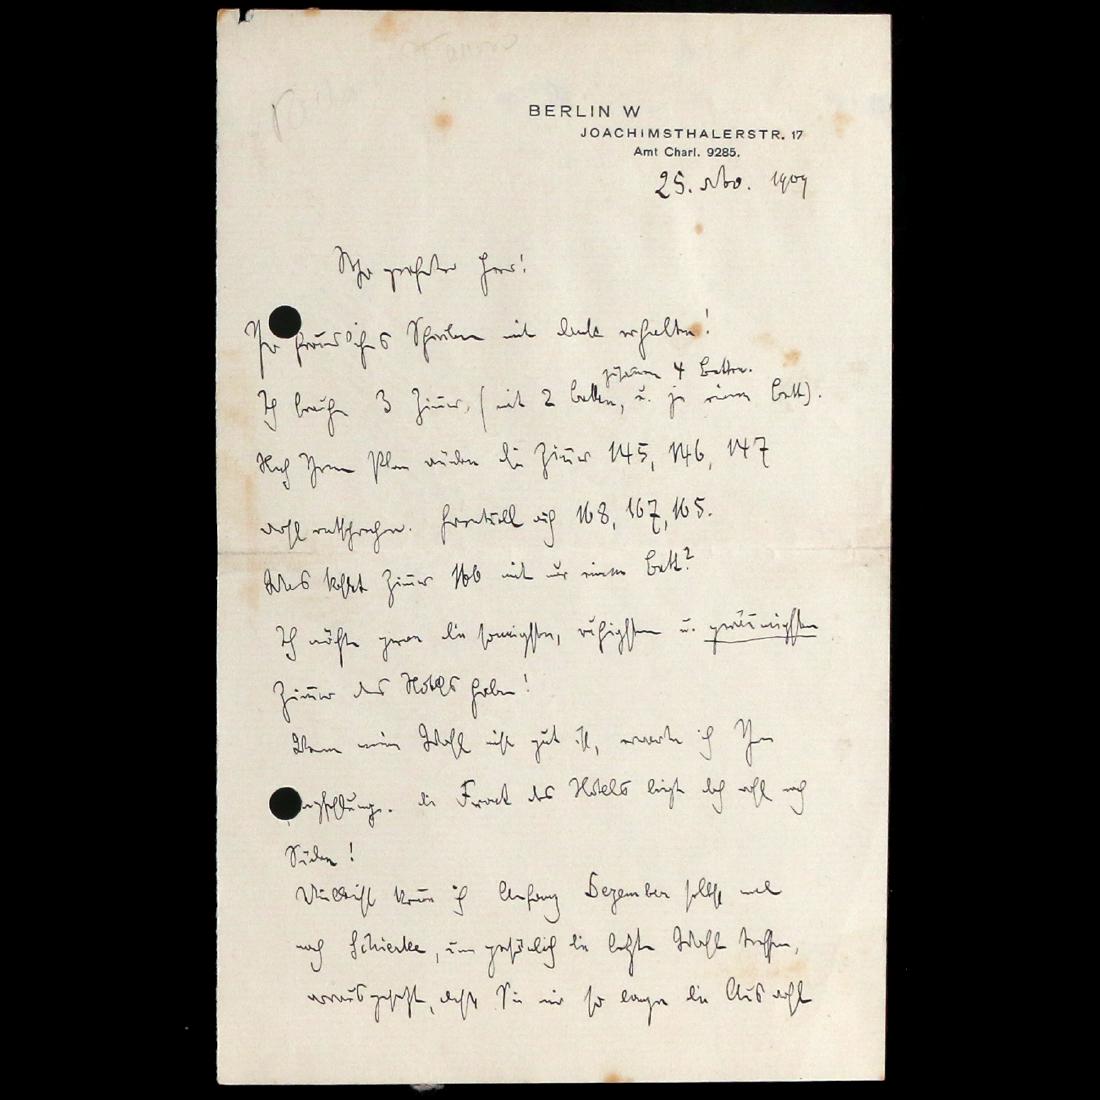 BERLIN W
JOACHIMSTHALERSTR. 17
Amt Charl. 9285.
25. Nov. 1909
Sehr geehrter Herr!
Ihr freundliches Schreiben mit Dank erhalten!
zusammen 4 Betten.
Ich brauche 3 Zimmer, (mit 2 Betten, u. je einem Bett).
Nach Ihrem Plan würden die Zimmer 145, 146, 147
wohl entsprechen. Eventuell auch 168, 167, 165.
Was kostet Zimmer 166 mit nur einem Bett?
Ich möchte gerne die sonnigsten, ruhigsten u. geräumigsten
Zimmer des Hotels haben!
Wenn meine Wahl nicht gut ist, erwarte ich Ihre
Empfehlung. Die Front des Hotels liegt doch wohl nach
Süden!
Vielleicht komme ich Anfang Dezember selbst mal
nach Schierke, um persönlich die letzte Wahl treffen,
vorausgesetzt, dass Sie mir so lange die Auswahl